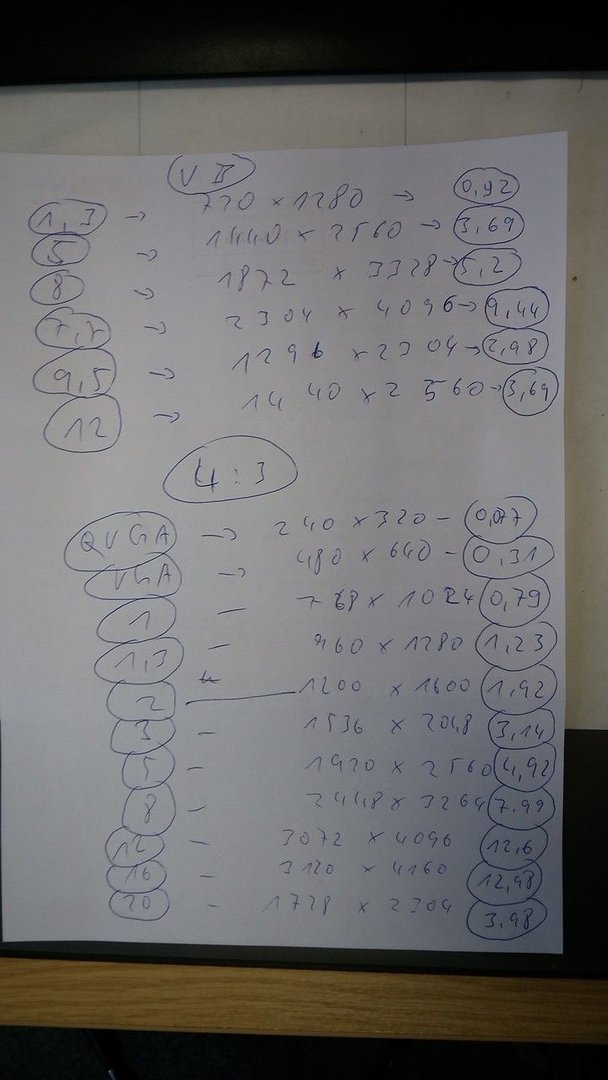 VB
1,3 → 720 × 1280 → 0,92
5 → 1440 × 2560 → 3,69
8 → 1872 × 3328 → 5,2
7,7 → 2304 × 4096 → 9,44
9,5 → 1296 × 2304 → 2,98
12 → 1440 × 2560 → 3,69
4:3
QVGA → 240 × 320 – 0,077
VGA → 480 × 640 – 0,31
1 – 768 × 1024 0,79
1,3 – 960 × 1280 1,23
2 – 1200 × 1600 1,92
3 – 1536 × 2048 3,14
5 – 1920 × 2560 4,92
8 – 2448 × 3264 7.99
12 – 3072 × 4096 12,6
16 – 3120 × 4160 12,98
20 – 1728 × 2304 3,98